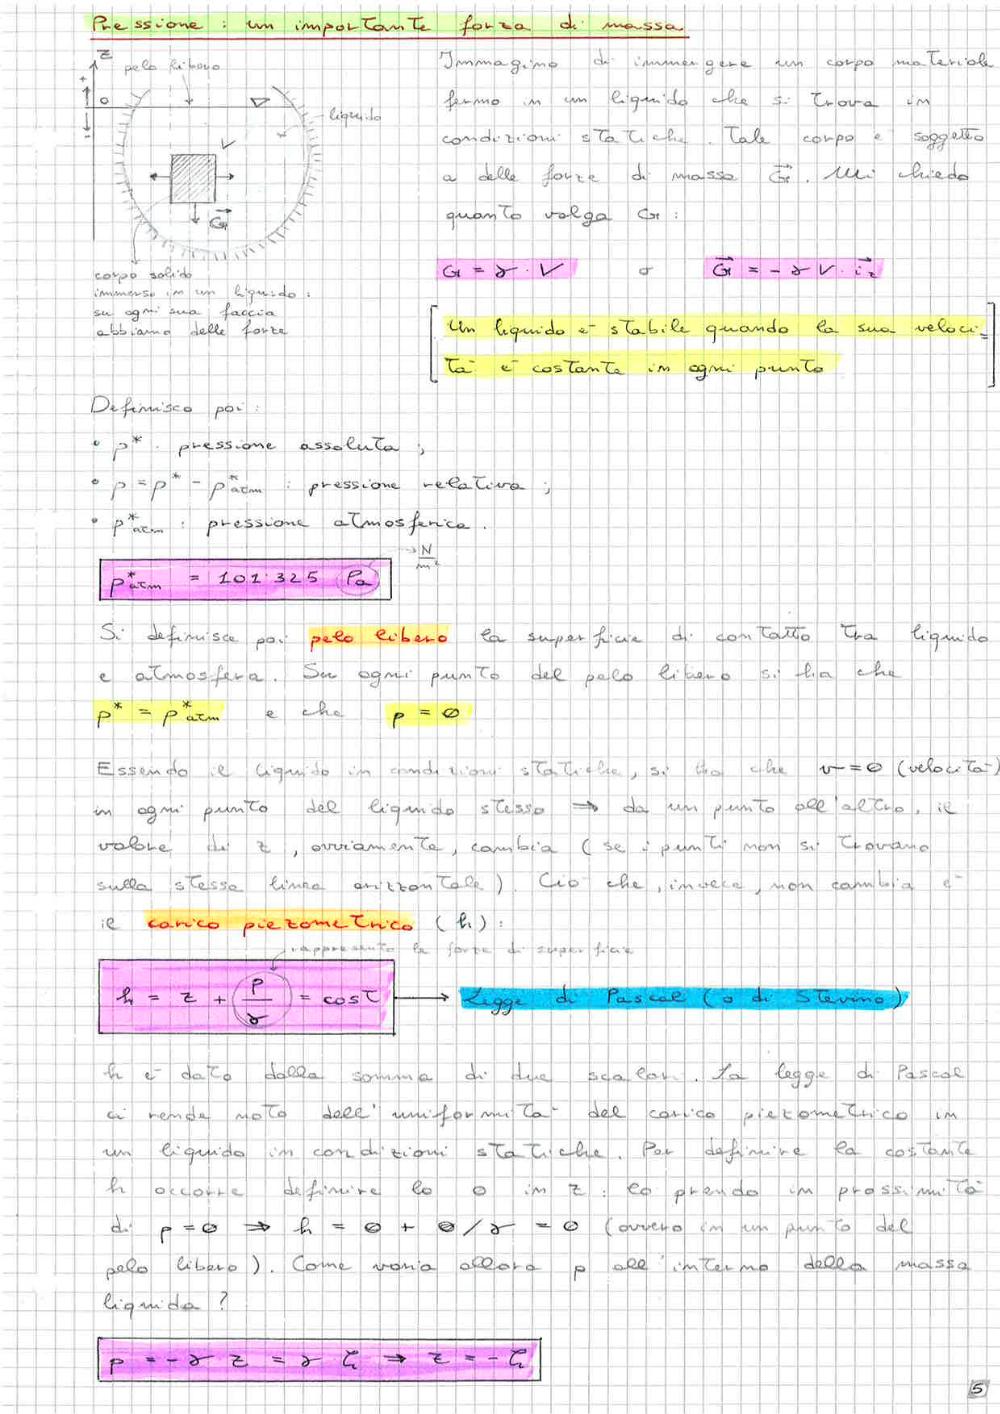 Pressione : un importante forza di massa
z
pelo libero
o
liquido
V
G
corpo solido
immerso in un liquido :
su ogni sua faccia
abbiamo delle forze
Immagino di immergere un corpo materiale
fermo in un liquido che si trova in
condizioni statiche. Tale corpo è soggetto
a delle forze di massa G⃗. Mi chiedo
quanto valga G :
G = γ · V o G⃗ = - γ V · i⃗z
Un liquido è stabile quando la sua veloci-
tà è costante in ogni punto
Definisco poi :
• p* : pressione assoluta ;
• p = p* - p*atm : pressione relativa ;
• p*atm : pressione atmosferica.
p*atm = 101'325 Pa → N/m²
Si definisce poi pelo libero la superficie di contatto tra liquido
e atmosfera. Su ogni punto del pelo libero si ha che
p* = p*atm e che p = 0
Essendo il liquido in condizioni statiche, si ha che v = 0 (velocità)
in ogni punto del liquido stesso ⇒ da un punto all'altro, il
valore di z, ovviamente, cambia (se i punti non si trovano
sulla stessa linea orizzontale). Ciò che, invece, non cambia è
il carico piezometrico (h) :
rappresenta le forze di superficie
h = z + p/γ = cost → Legge di Pascal (o di Stevino)
h è dato dalla somma di due scalari. La legge di Pascal
ci rende noto dell'uniformità del carico piezometrico in
un liquido in condizioni statiche. Per definire la costante
h occorre definire lo 0 in z : lo prendo in prossimità
di p = 0 ⇒ h = 0 + 0/γ = 0 (ovvero in un punto del
pelo libero). Come varia allora p all'interno della massa
liquida ?
p = - γ z = γ ζ ⇒ z = - ζ
5